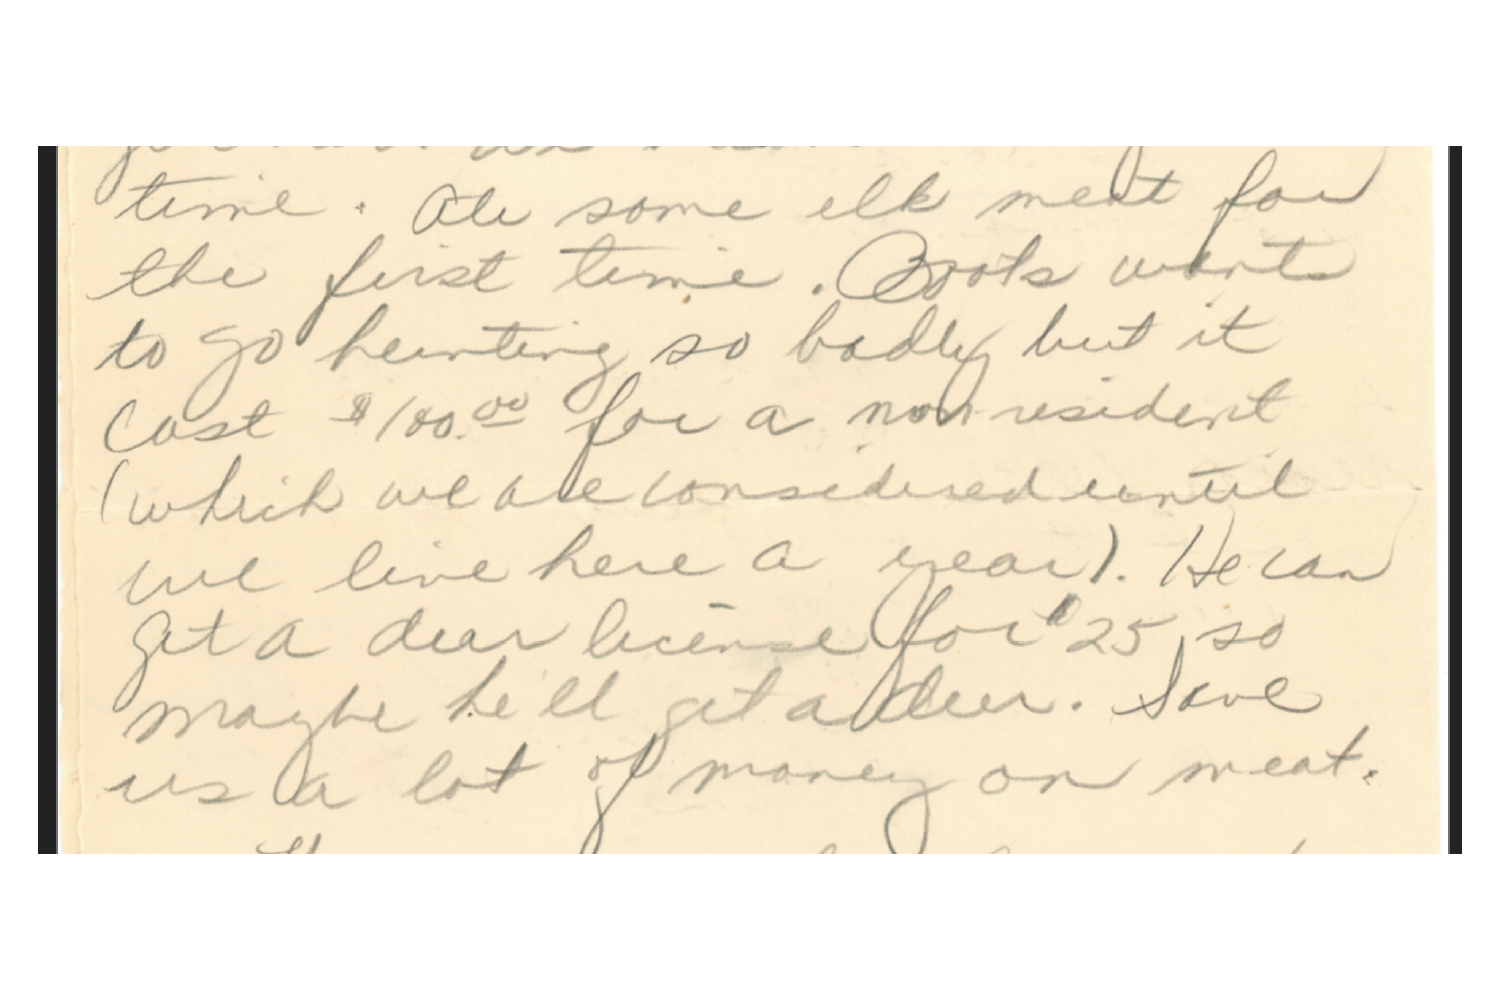 time. Ate some elk meat for
the first time. Boots want
to go hunting so badly but it
cost $100.00 for a non resident
(which we are considered until
we live here a year). He can
get a dear license for $25, so
maybe he'll get a deer. Save
us a lot of money on meat.